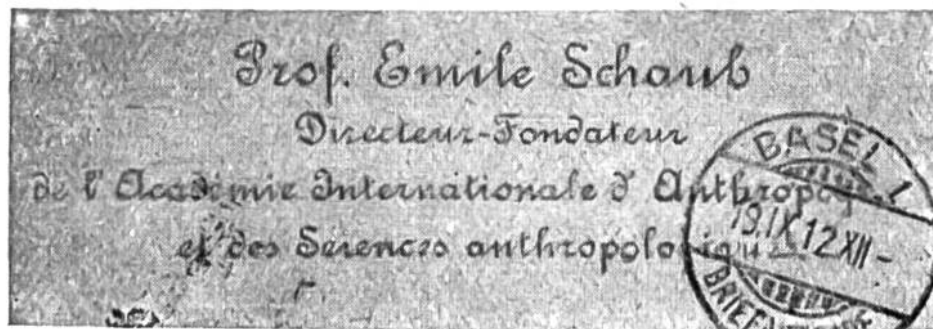 Prof. Emile Schaub
Directeur-Fondateur
de l'Académie Internationale d'Anthropo
et des Sciences anthropologiqu
BASEL 1
19.IX.12 XII-